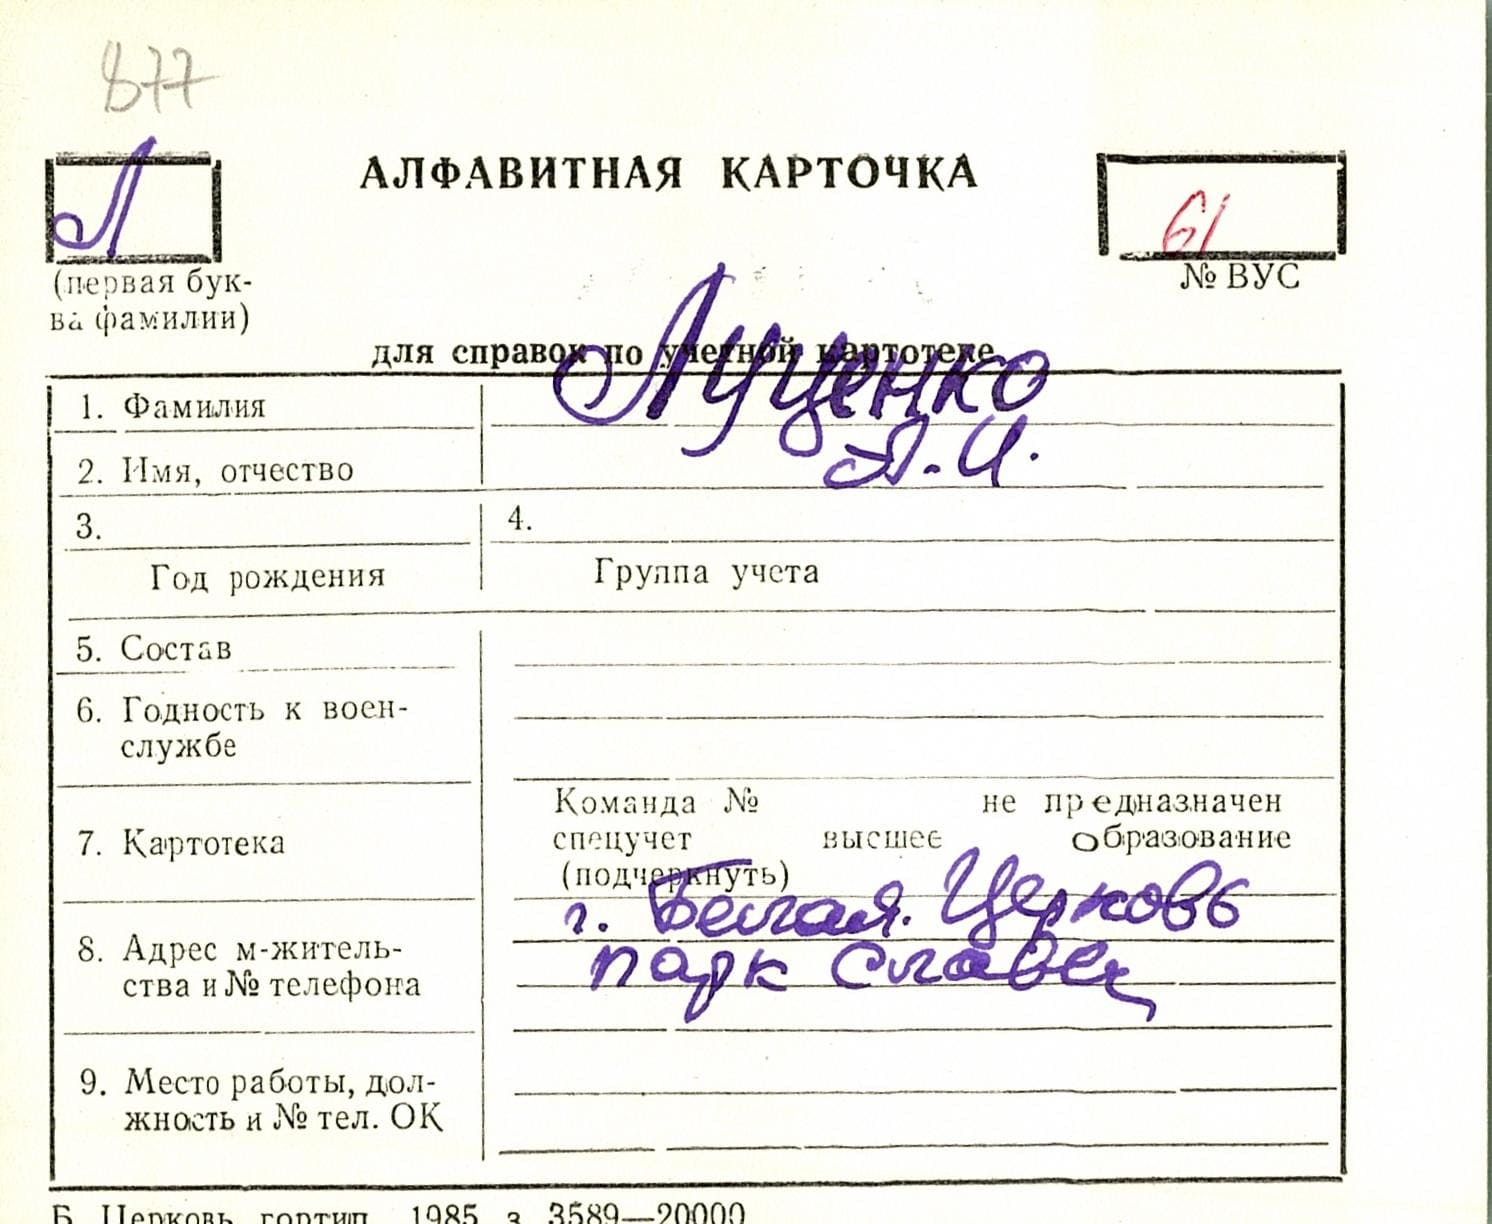 877
Л
АЛФАВИТНАЯ КАРТОЧКА
61
(первая бук-
ва фамилии)
№ ВУС
для справок по учетной картотеке
1. Фамилия Луценко
2. Имя, отчество А. И.
3. 4.
Год рождения Группа учета
5. Состав
6. Годность к воен-
службе
7. Картотека
Команда № не предназначен
спецучет высшее образование
(подчеркнуть)
8. Адрес м-житель-
ства и № телефона
г. Белая Церковь
парк Славы
9. Место работы, дол-
жность и № тел. ОК
Б. Церковь, гортип. 1985 з. 3589—20000